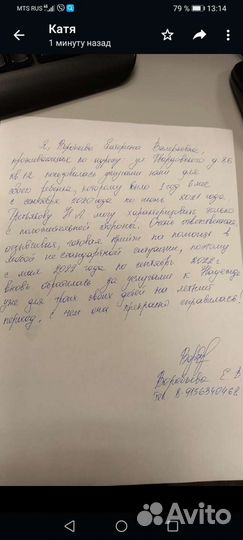 MTS RUS 79 % 13:14
Катя
1 минуту назад
Я, Воробьева Екатерина Валерьевна,
проживающая по адресу ул
кв 12 пользовалась услугами няни для
своего ребенка, которому было 1 год 8 мес
с сентября 2020 года по июнь 2021 года.
Третьякову Н.А могу характеризовать только
с положительной стороны. Очень ответственная,
отзывчивая, готовая прийти на помощь в
любой не стандартной ситуации, поэтому
с мая 2022 года по сентябрь 2022г
вновь обратилась за услугами к Надежде
уже для троих своих детей на летний
период, с чем она прекрасно справилась!
Воробьева Е В
Тел 8-9136340468
Avito